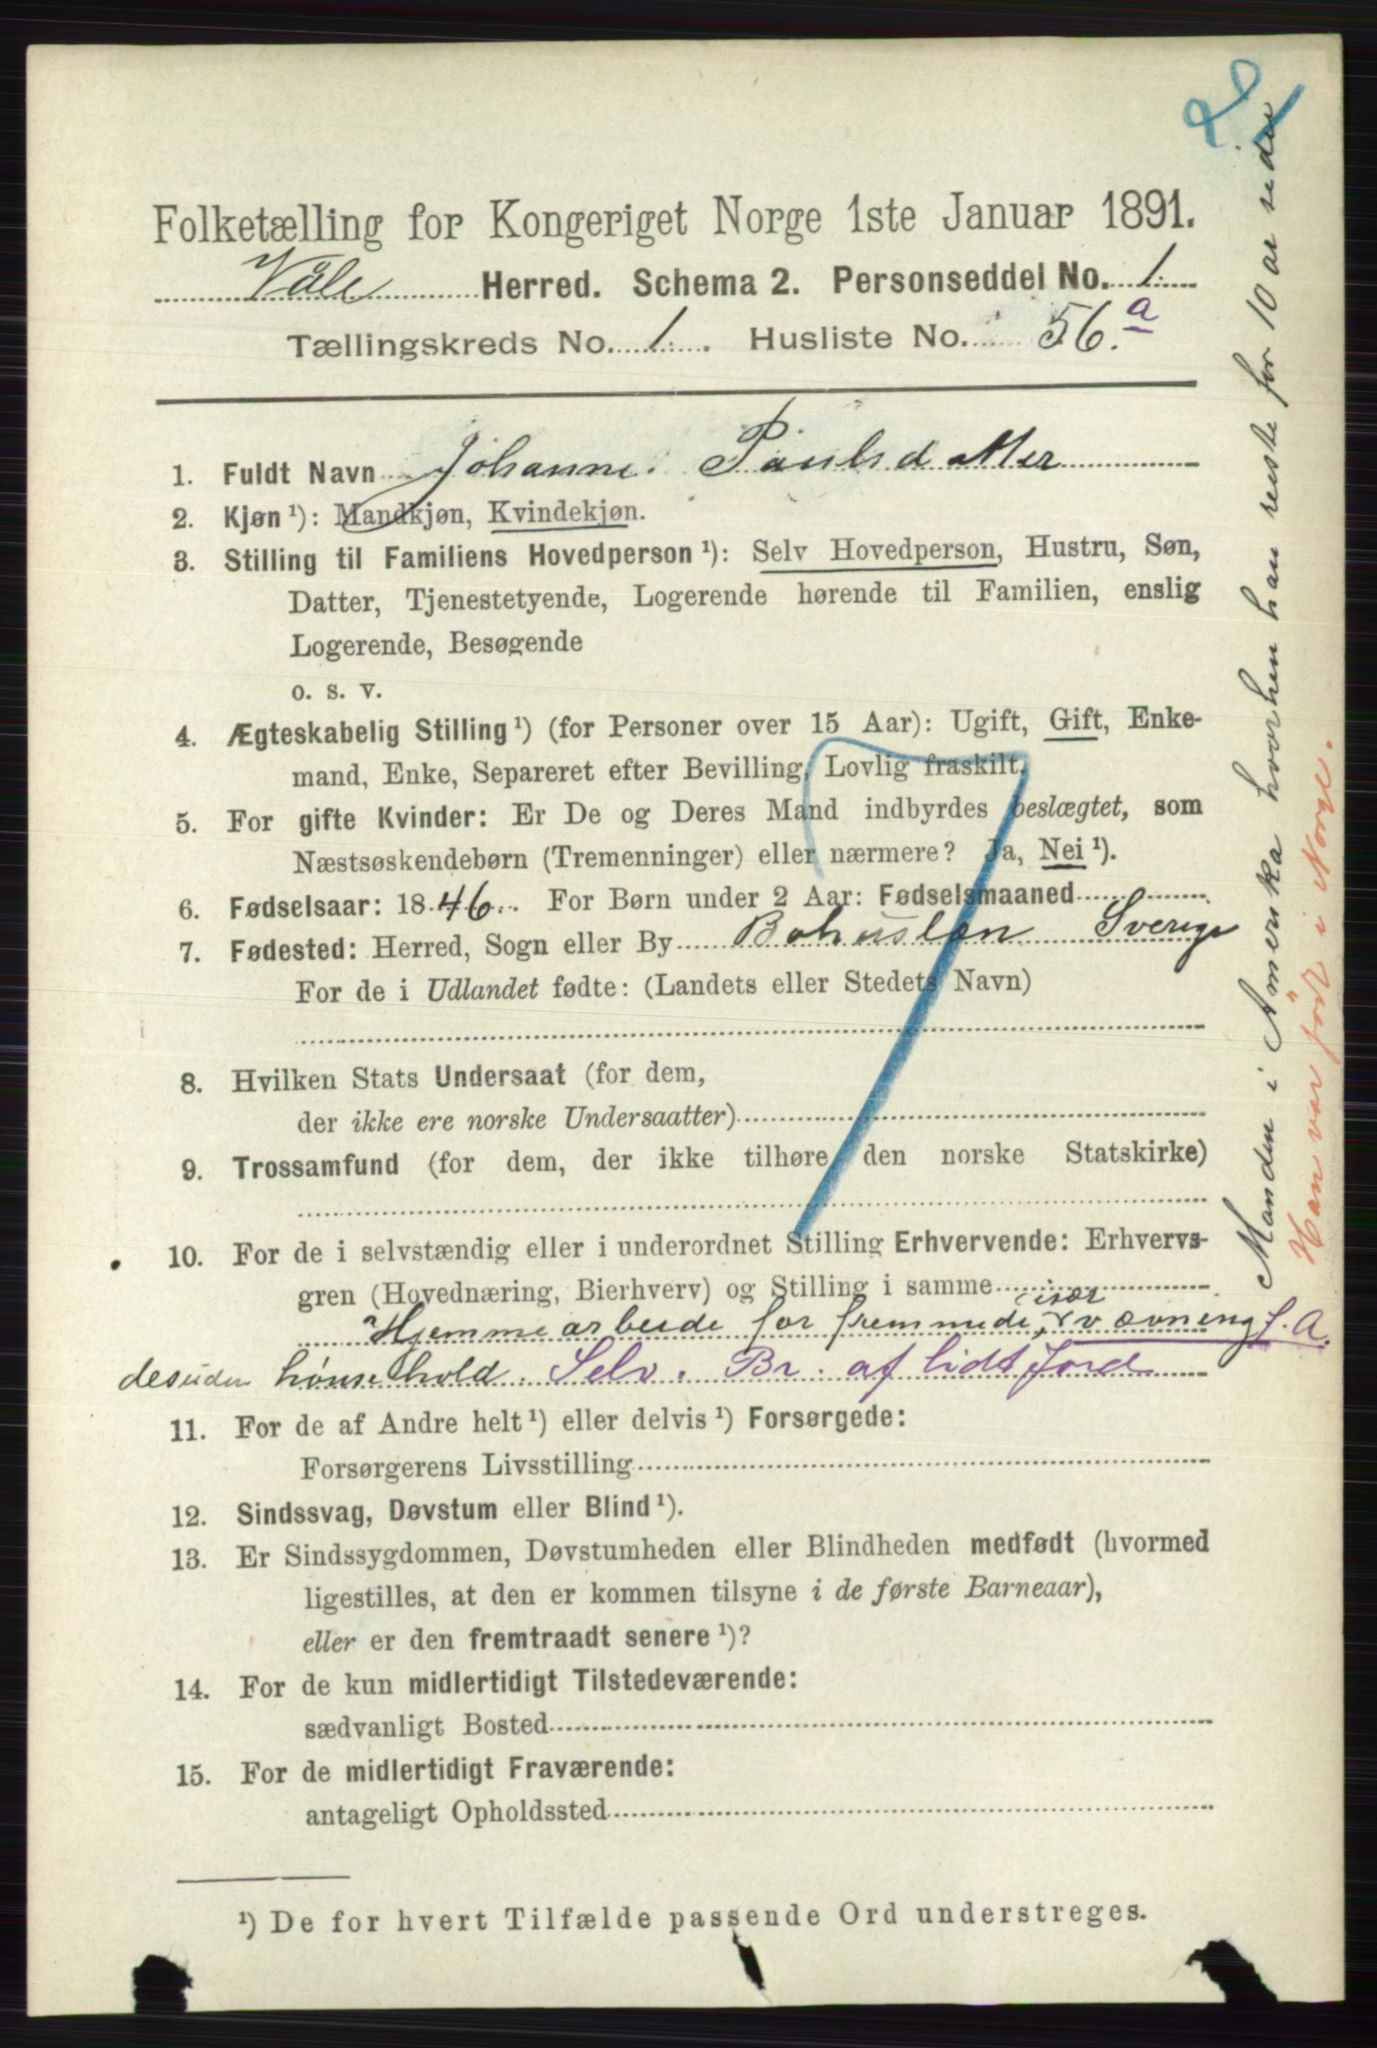 2.
Folketælling for Kongeriget Norge 1ste Januar 1891.
Våle Herred. Schema 2. Personseddel No. 1.
Tællingskreds No. 1. Husliste No. 56.a
1. Fuldt Navn Johanne Paulsdatter
2. Kjøn¹): Mandkjøn, Kvindekjøn.
3. Stilling til Familiens Hovedperson¹): Selv Hovedperson, Hustru, Søn,
Datter, Tjenestetyende, Logerende hørende til Familien, enslig
Logerende, Besøgende
o. s. v.
4. Ægteskabelig Stilling¹) (for Personer over 15 Aar): Ugift, Gift, Enke-
mand, Enke, Separeret efter Bevilling, Lovlig fraskilt.
5. For gifte Kvinder: Er De og Deres Mand indbyrdes beslægtet, som
Næstsøskendebørn (Tremenninger) eller nærmere? Ja, Nei¹).
6. Fødselsaar: 1846. For Børn under 2 Aar: Fødselsmaaned
7. Fødested: Herred, Sogn eller By Bohuslen Sverige
For de i Udlandet fødte: (Landets eller Stedets Navn)
8. Hvilken Stats Undersaat (for dem,
der ikke ere norske Undersaatter)
9. Trossamfund (for dem, der ikke tilhøre den norske Statskirke)
10. For de i selvstændig eller i underordnet Stilling Erhvervende: Erhvervs-
gren (Hovednæring, Bierhverv) og Stilling i samme
Hjemmearbeide for fremmede, især vævning f. A.
desuden hönsehold. Selv. Br. af lidt Jord
11. For de af Andre helt¹) eller delvis¹) Forsørgede:
Forsørgerens Livsstilling
12. Sindssvag, Døvstum eller Blind¹).
13. Er Sindssygdommen, Døvstumheden eller Blindheden medfødt (hvormed
ligestilles, at den er kommen tilsyne i de første Barneaar),
eller er den fremtraadt senere¹)?
14. For de kun midlertidigt Tilstedeværende:
sædvanligt Bosted
15. For de midlertidigt Fraværende:
antageligt Opholdssted
¹) De for hvert Tilfælde passende Ord understreges.
Manden i Amerika hvorhen han reiste for 10 år siden
Han var født i Norge.